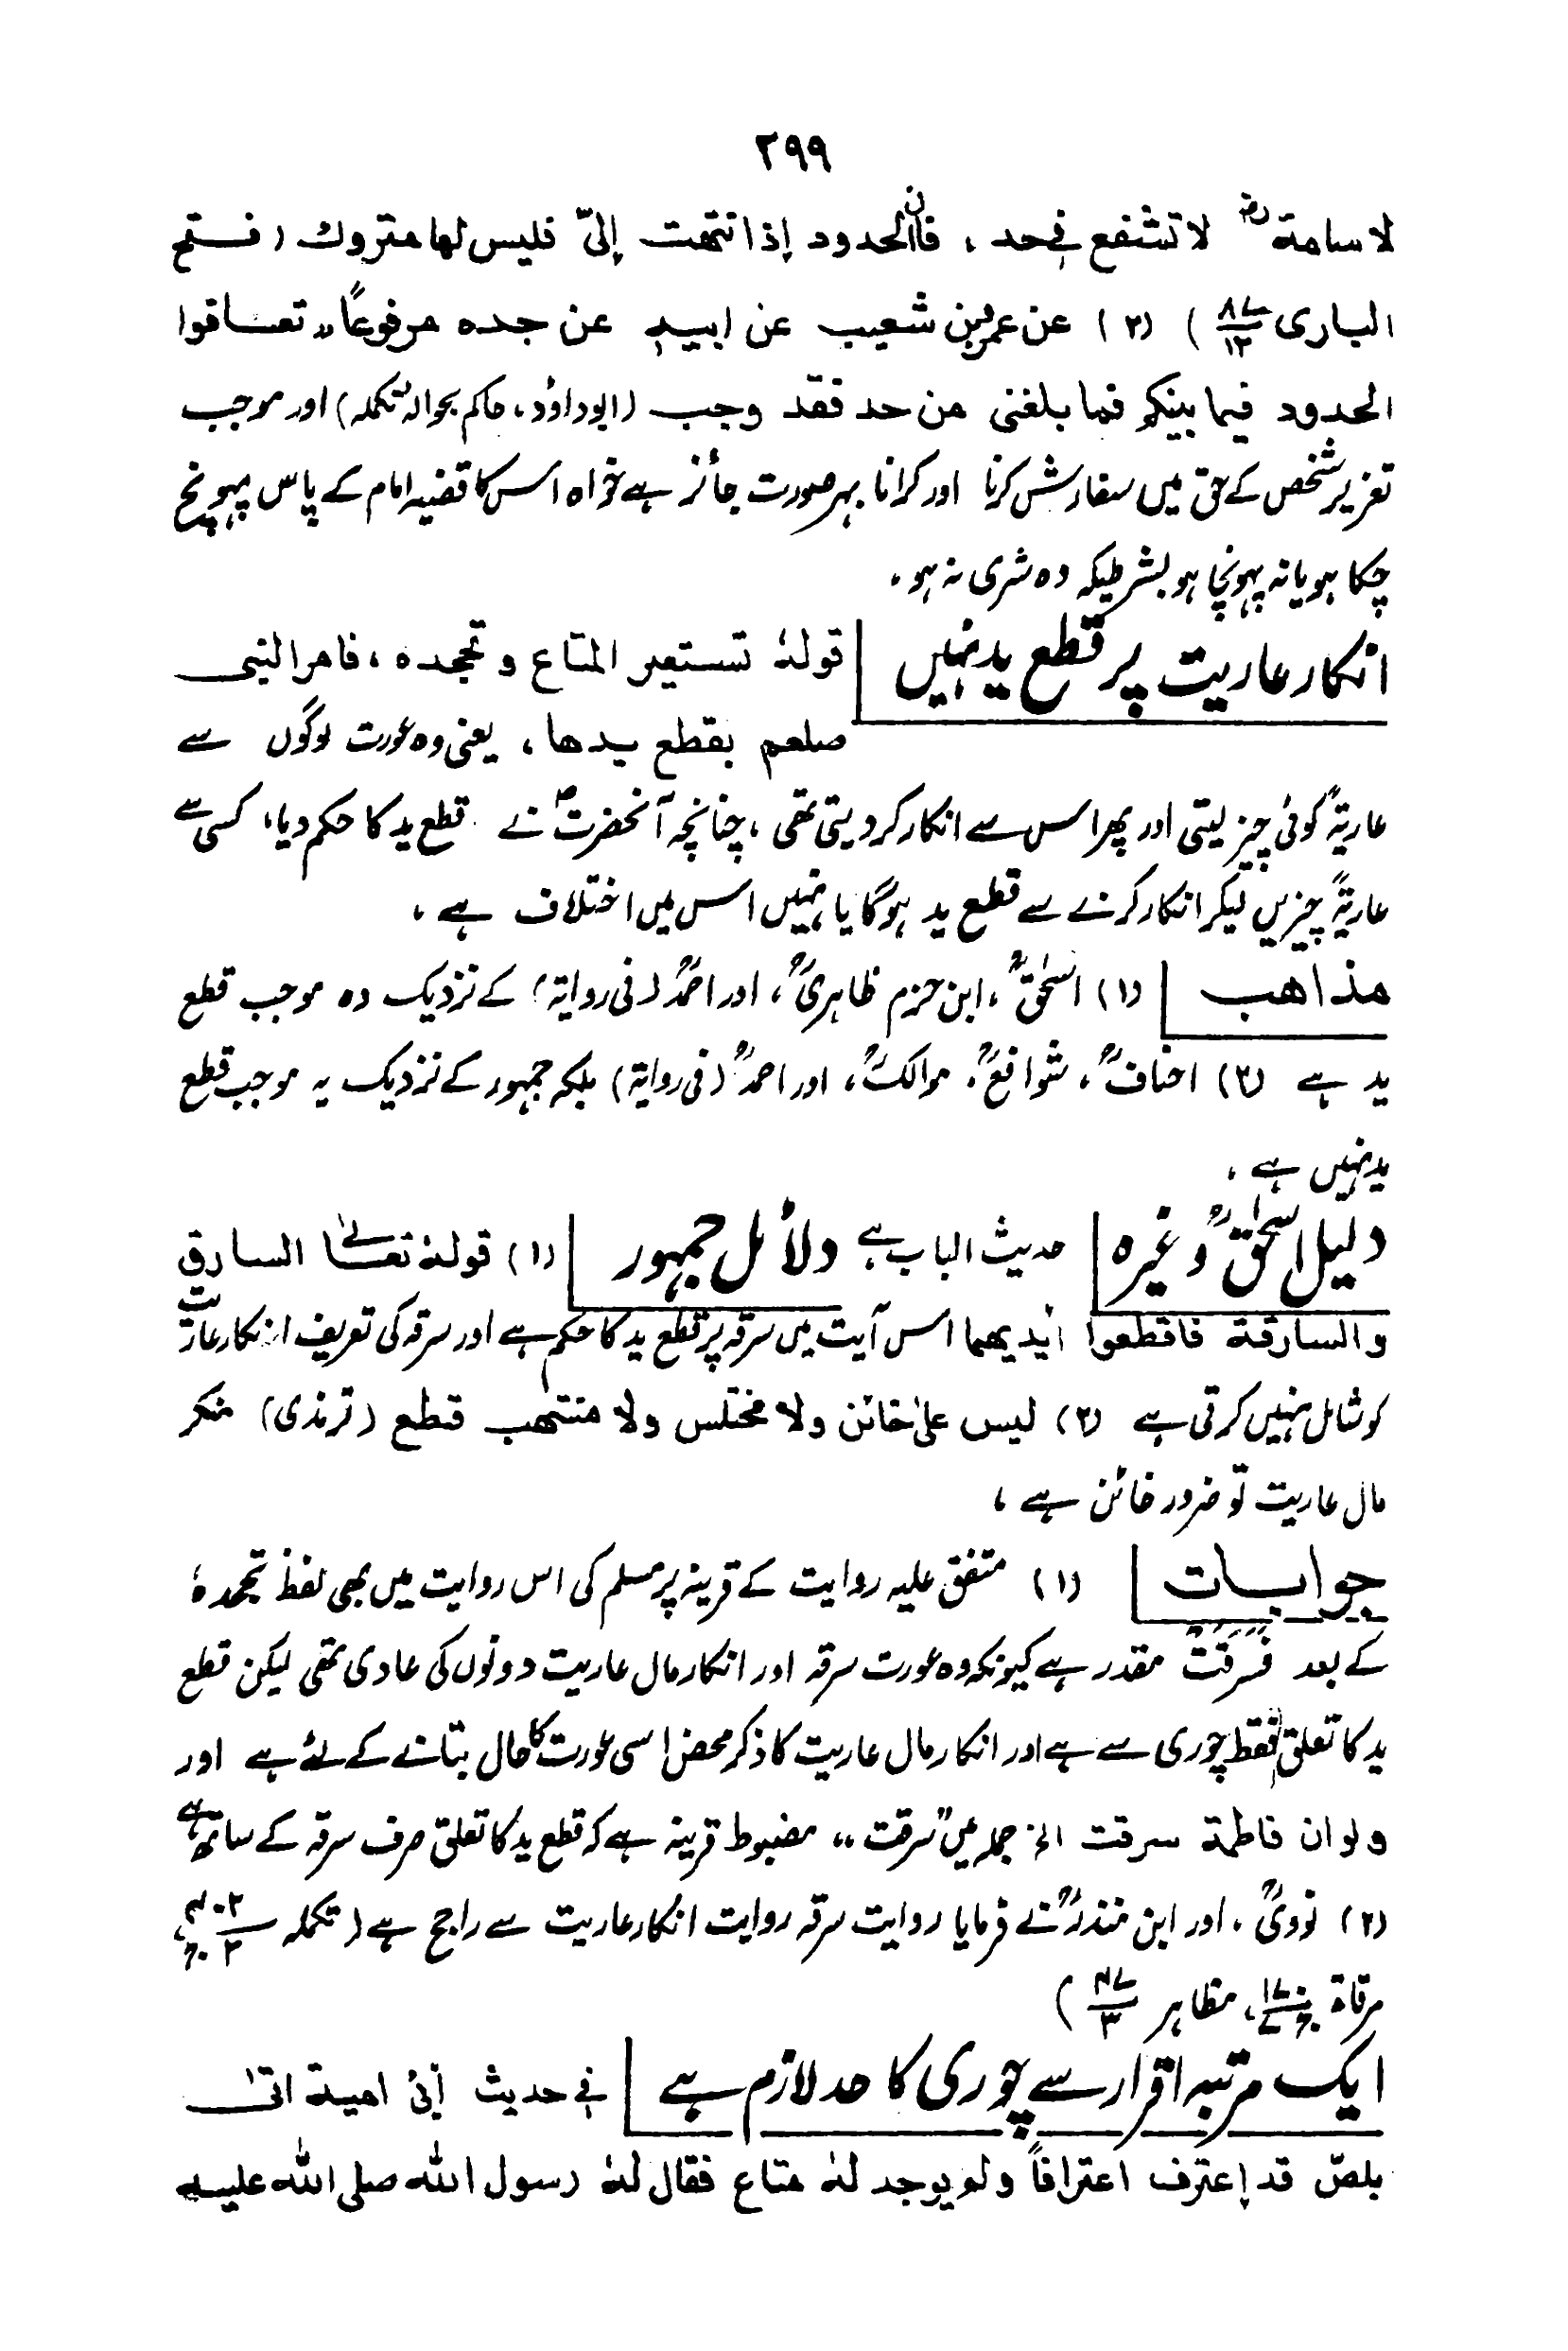 ۲۹۹
لاسامة رض لا تشفع فی حد ، فان الحدود إذا نتهت إلیّ فلیس لها متروك (فتح
الباری ۸۷/۱۲) (۲) عن عمرو بن شعیب عن ابیه عن جده مرفوعًا "تعافوا
الحدود فیما بینکم فما بلغنی من حد فقد وجب (ابوداؤد، حاکم بحوالہ تکملہ) اور موجب
تعزیر شخص کے حق میں سفارش کرنا اور کرانا بہر صورت جائز ہے خواہ اس کا قضیہ امام کے پاس پہونچ
چکا ہو یا نہ پہونچا ہو بشرطیکہ وہ شری نہ ہو ۔
انکار عاریت پر قطع ید نہیں | قولہٗ تستعیر المتاع و تجحدہ ، فامر النبی
صلعم بقطع یدها ، یعنی وہ عورت لوگوں سے
عاریۃً کوئی چیز لیتی اور پھر اس سے انکار کر دیتی تھی ، چنانچہ آنحضرتؐ نے قطع ید کا حکم دیا ، کسی سے
عاریۃً چیزیں لیکر انکار کرنے سے قطع ید ہوگا یا نہیں اس میں اختلاف ہے ،
مذاهب | (۱) اسحٰقؒ ، ابن حزم ظاہریؒ ، اور احمدؒ (فی روایۃ) کے نزدیک وہ موجب قطع
ید ہے (۲) احنافؒ ، شوافعؒ ، موالکؒ ، اور احمدؒ (فی روایۃ) بلکہ جمہور کے نزدیک یہ موجب قطع
ید نہیں ہے ،
دلیل اسحٰقؒ وغیرہ | حدیث الباب ہے دلائل جمہور | (۱) قولہٗ تعالیٰ السارق
والسارقة فاقطعوا ایدیهما اس آیت میں سرقہ پر قطع ید کا حکم ہے اور سرقہ کی تعریف انکار عاریت
کو شامل نہیں کرتی ہے (۲) لیس علیٰ خائن ولا مختلس ولا منتهب قطع (ترمذی) منکر
مال عاریت تو ضرور خائن ہے ،
جوابات | (۱) متفق علیہ روایت کے قرینہ پر مسلم کی اس روایت میں بھی لفظ تجحدہٗ
کے بعد فَسَرَقَتْ مقدر ہے کیونکہ وہ عورت سرقہ اور انکار مال عاریت دونوں کی عادی تھی لیکن قطع
ید کا تعلق فقط چوری سے ہے اور انکار مال عاریت کا ذکر محض اسی عورت کا حال بتانے کے لئے ہے اور
ولو ان فاطمة سرقت الخ جملہ میں "سرقت" مضبوط قرینہ ہے کہ قطع ید کا تعلق صرف سرقہ کے ساتھ ہے
(۲) نوویؒ ، اور ابن منذرؒ نے فرمایا روایت سرقہ روایت انکار عاریت سے راجح ہے (تکملہ
مرقاۃ ، مظاہر )
ایک مرتبہ اقرار سے چوری کا حد لازم ہے | فی حدیث أبیٔ امیة اتیٰ
بلصّ قد إعترف اعترافاً ولم یوجد لہٗ متاع فقال لہٗ رسول اللّٰہ صلی اللّٰہ علیه